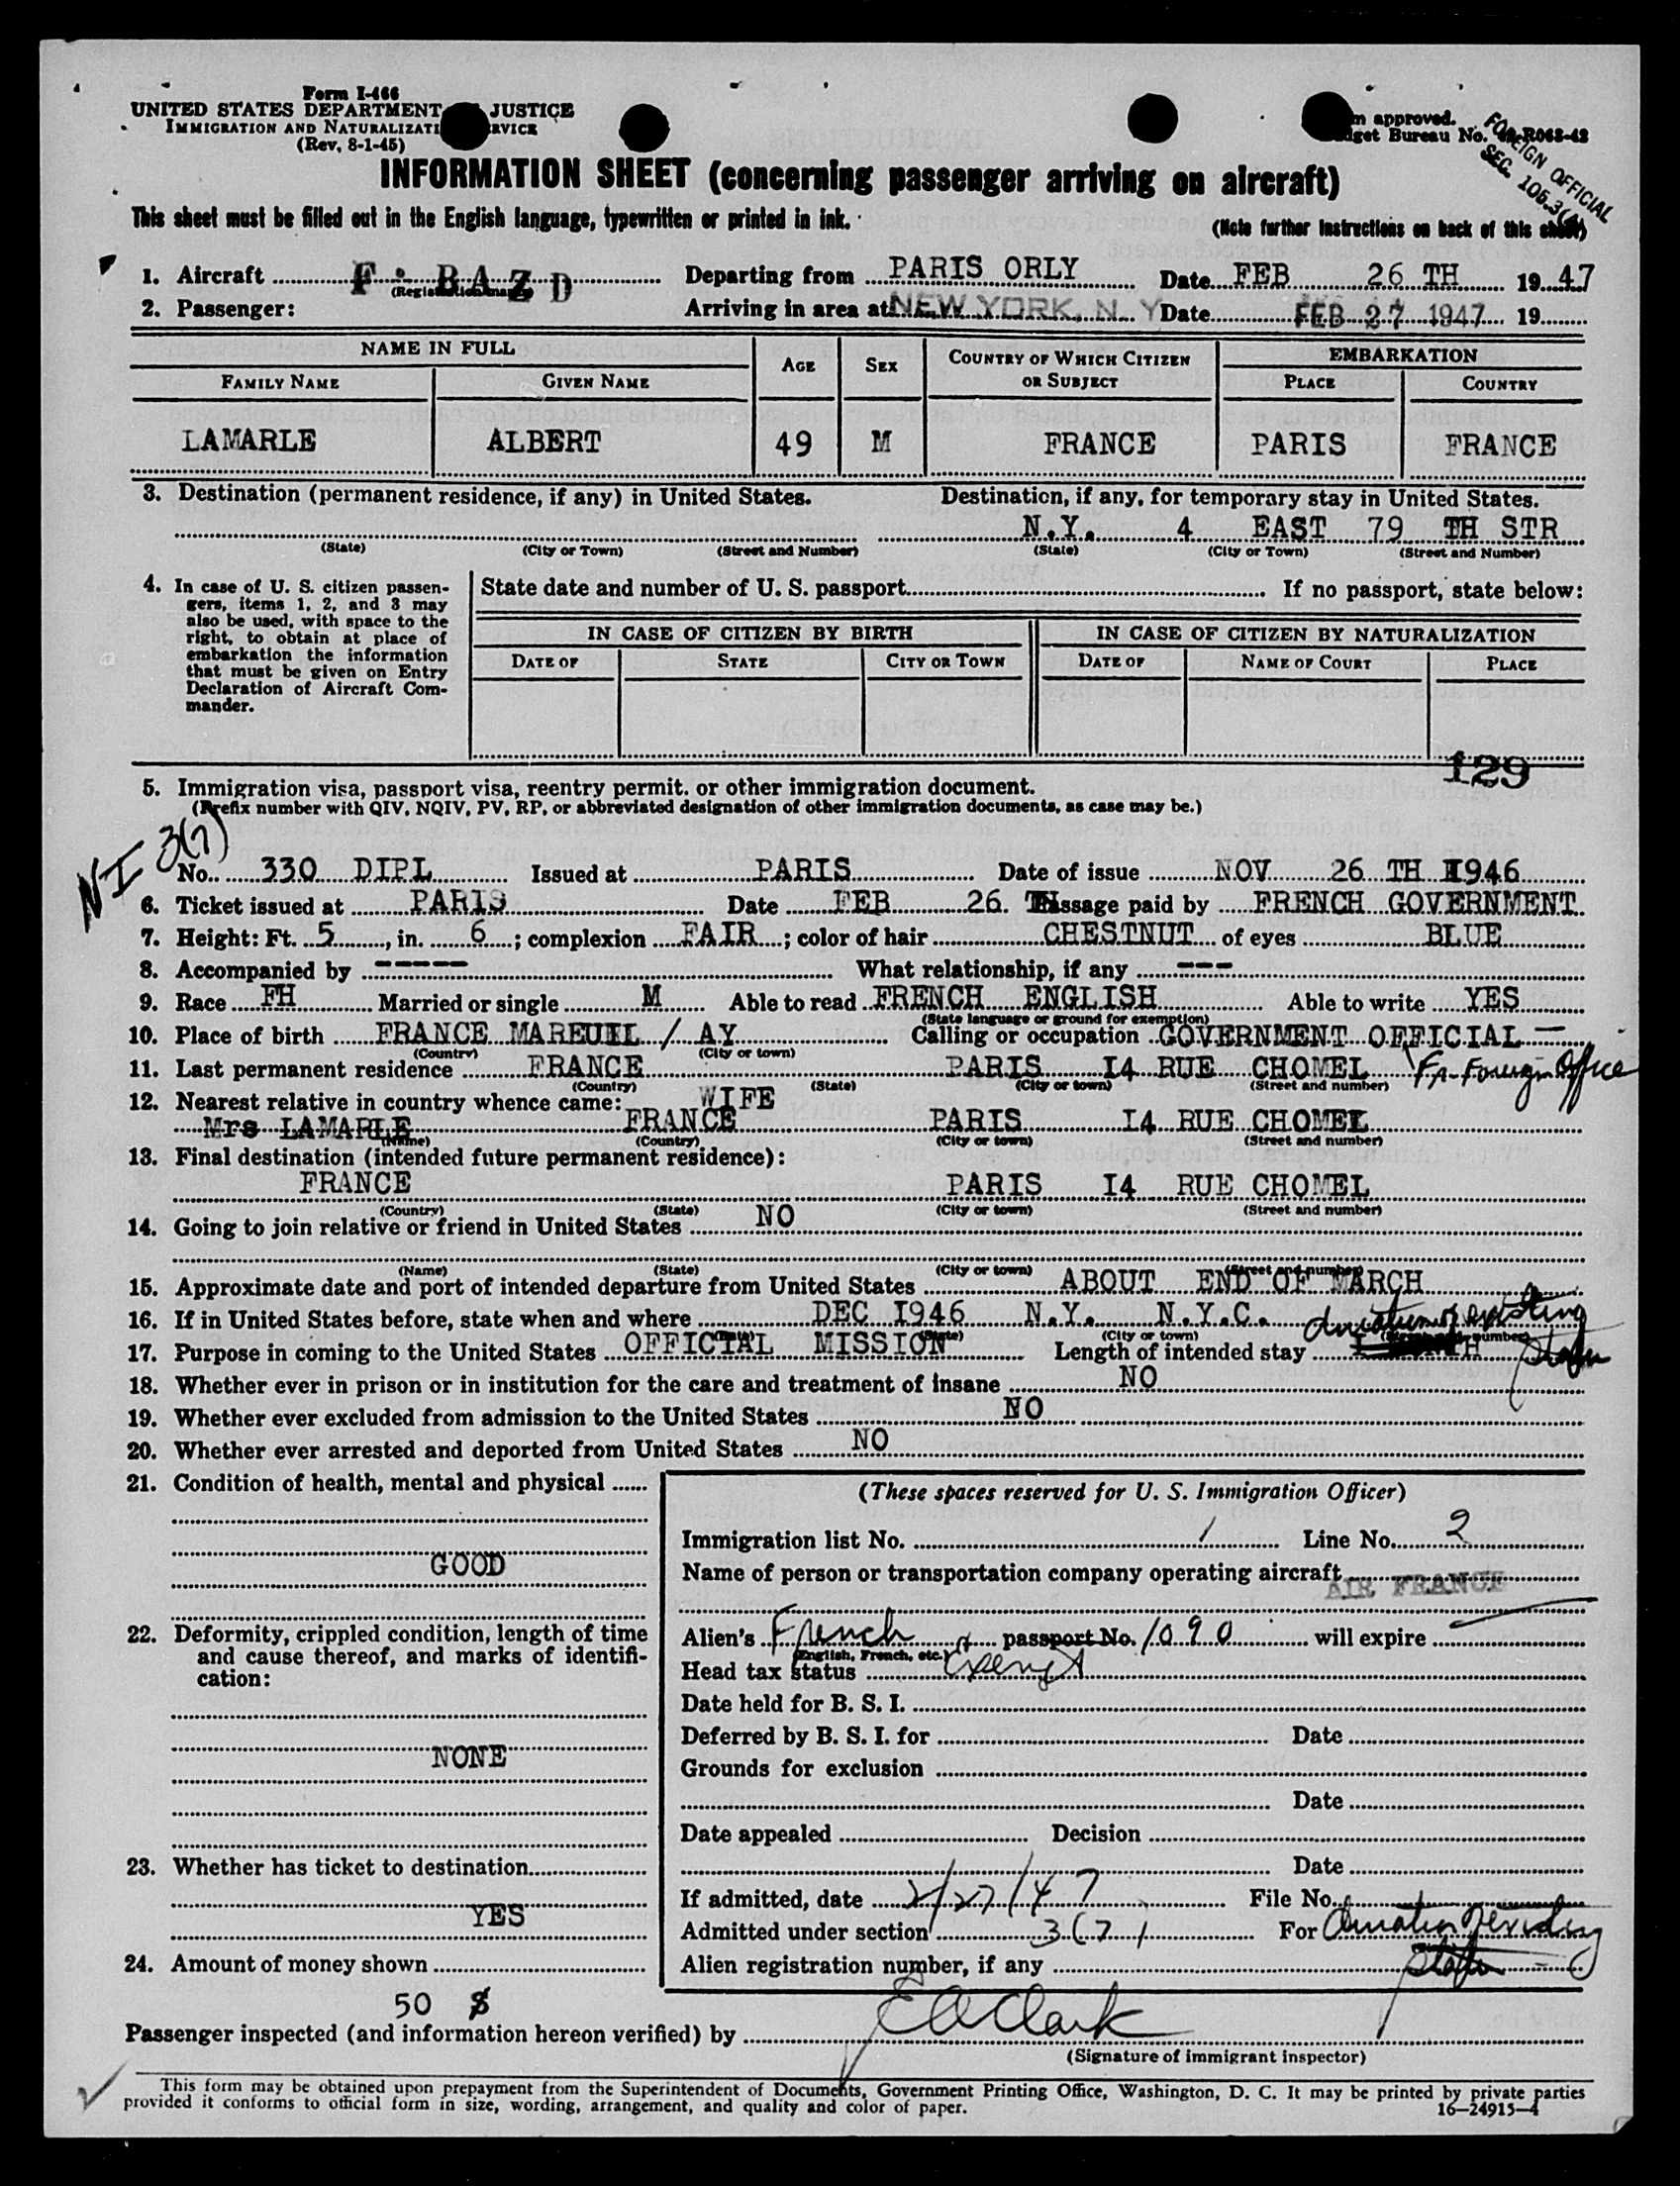 Form I-466
UNITED STATES DEPARTMENT JUSTICE
IMMIGRATION AND NATURALIZATI RVICE
(Rev. 8-1-45)
m approved.
get Bureau No. R068-42
FOREIGN OFFICIAL
SEC. 105.3(A)
INFORMATION SHEET (concerning passenger arriving on aircraft)
This sheet must be filled out in the English language, typewritten or printed in ink.
(Note further instructions on back of this sheet)
1. Aircraft F. BAZD Departing from PARIS ORLY Date FEB 26 TH 19 47
2. Passenger: Arriving in area at NEW YORK, N. Y Date FEB 27 1947 19
NAME IN FULL AGE SEX COUNTRY OF WHICH CITIZEN OR SUBJECT EMBARKATION
FAMILY NAME GIVEN NAME PLACE COUNTRY
LAMARLE ALBERT 49 M FRANCE PARIS FRANCE
3. Destination (permanent residence, if any) in United States. Destination, if any, for temporary stay in United States.
N.Y. 4 EAST 79 TH STR
(State) (City or Town) (Street and Number) (State) (City or Town) (Street and Number)
4. In case of U. S. citizen passen-
gers, items 1, 2, and 3 may
also be used, with space to the
right, to obtain at place of
embarkation the information
that must be given on Entry
Declaration of Aircraft Com-
mander.
State date and number of U. S. passport If no passport, state below:
IN CASE OF CITIZEN BY BIRTH IN CASE OF CITIZEN BY NATURALIZATION
DATE OF STATE CITY OR TOWN DATE OF NAME OF COURT PLACE
129
5. Immigration visa, passport visa, reentry permit, or other immigration document.
(Prefix number with QIV, NQIV, PV, RP, or abbreviated designation of other immigration documents, as case may be.)
NI 3(7)
No. 330 DIPL Issued at PARIS Date of issue NOV 26 TH I946
6. Ticket issued at PARIS Date FEB 26. TH Passage paid by FRENCH GOVERNMENT
7. Height: Ft. 5, in. 6; complexion FAIR; color of hair CHESTNUT of eyes BLUE
8. Accompanied by ----- What relationship, if any ---
9. Race FH Married or single M Able to read FRENCH ENGLISH Able to write YES
(State language or ground for exemption)
10. Place of birth FRANCE MAREUIL / AY Calling or occupation GOVERNMENT OFFICIAL —
(Country) (City or town)
Fr. Foreign Office
11. Last permanent residence FRANCE PARIS I4 RUE CHOMEL
(Country) (State) (City or town) (Street and number)
12. Nearest relative in country whence came: WIFE
Mrs LAMARLE FRANCE PARIS I4 RUE CHOMEL
(Name) (Country) (City or town) (Street and number)
13. Final destination (intended future permanent residence):
FRANCE PARIS I4 RUE CHOMEL
(Country) (State) (City or town) (Street and number)
14. Going to join relative or friend in United States NO
(Name) (State) (City or town) (Street and number)
15. Approximate date and port of intended departure from United States ABOUT END OF MARCH
16. If in United States before, state when and where DEC I946 N.Y. N.Y.C.
(Date) (State) (City or town) number)
duration of existing status
17. Purpose in coming to the United States OFFICIAL MISSION Length of intended stay
18. Whether ever in prison or in institution for the care and treatment of insane NO
19. Whether ever excluded from admission to the United States NO
20. Whether ever arrested and deported from United States NO
21. Condition of health, mental and physical
GOOD
22. Deformity, crippled condition, length of time
and cause thereof, and marks of identifi-
cation:
NONE
23. Whether has ticket to destination
YES
24. Amount of money shown
50 $
(These spaces reserved for U. S. Immigration Officer)
Immigration list No. 1 Line No. 2
Name of person or transportation company operating aircraft
AIR FRANCE
Alien's French passport No. 1090 will expire
(English, French, etc.)
Head tax status Exempt
Date held for B. S. I.
Deferred by B. S. I. for Date
Grounds for exclusion
Date
Date appealed Decision
Date
If admitted, date 2/27/47 File No.
Admitted under section 3(7) For duration of existing
status
Alien registration number, if any
Passenger inspected (and information hereon verified) by E A Clark
(Signature of immigrant inspector)
This form may be obtained upon prepayment from the Superintendent of Documents, Government Printing Office, Washington, D. C. It may be printed by private parties
provided it conforms to official form in size, wording, arrangement, and quality and color of paper.
16—24915-4